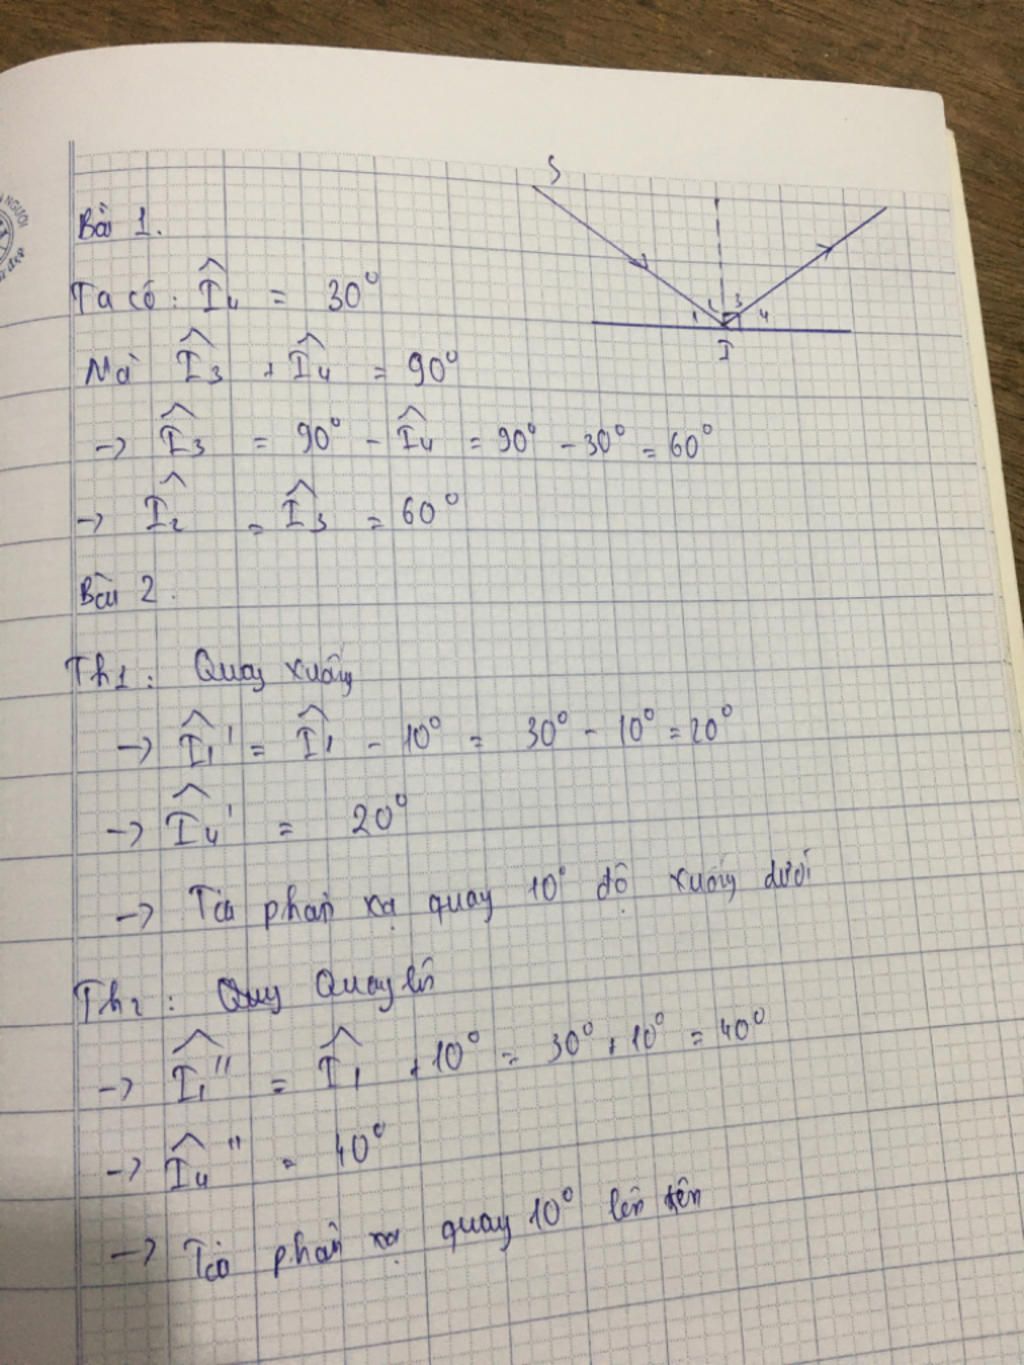 S
Bài 1.
1 2 3 4
I
Ta có: Î₄ = 30°
Mà Î₃ + Î₄ = 90°
-> Î₃ = 90° - Î₄ = 90° - 30° = 60°
-> Î₂ = Î₃ = 60°
Bài 2.
Th1: Quay xuống
-> Î₁' = Î₁ - 10° = 30° - 10° = 20°
-> Î₄' = 20°
-> Tia phản xạ quay 10° độ xuống dưới
Th2: Quay lên
-> Î₁" = Î₁ + 10° = 30° + 10° = 40°
-> Î₄" = 40°
-> Tia phản xạ quay 10° lên trên